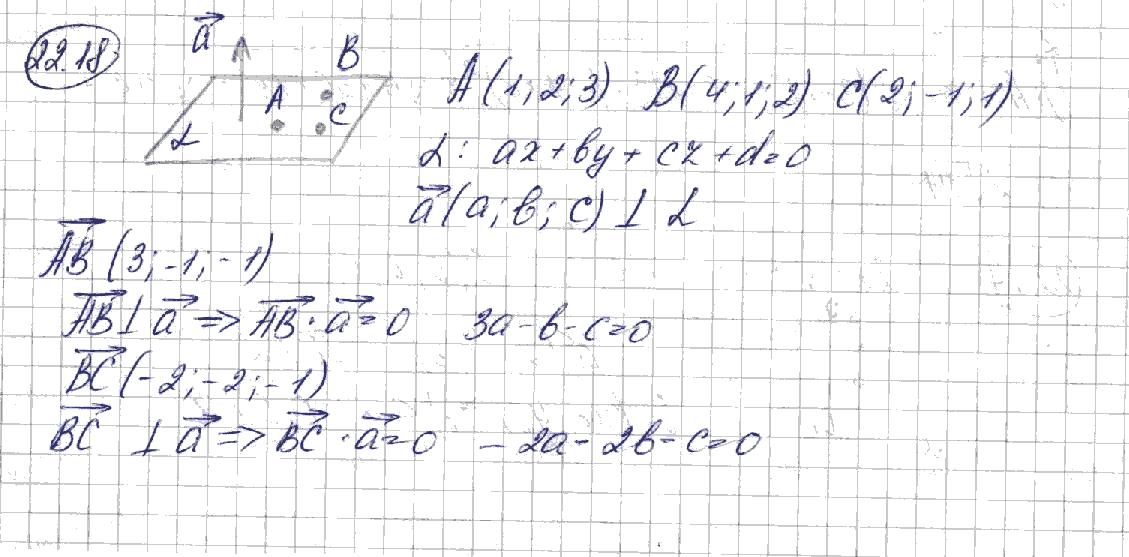 22.18
a⃗
B
A
C
α
A(1; 2; 3) B(4; 1; 2) C(2; -1; 1)
α: ax + by + cz + d = 0
a⃗(a; b; c) ⊥ α
AB⃗ (3; -1; -1)
AB⃗ ⊥ a⃗ => AB⃗ · a⃗ = 0 3a - b - c = 0
BC⃗ (-2; -2; -1)
BC⃗ ⊥ a⃗ => BC⃗ · a⃗ = 0 - 2a - 2b - c = 0